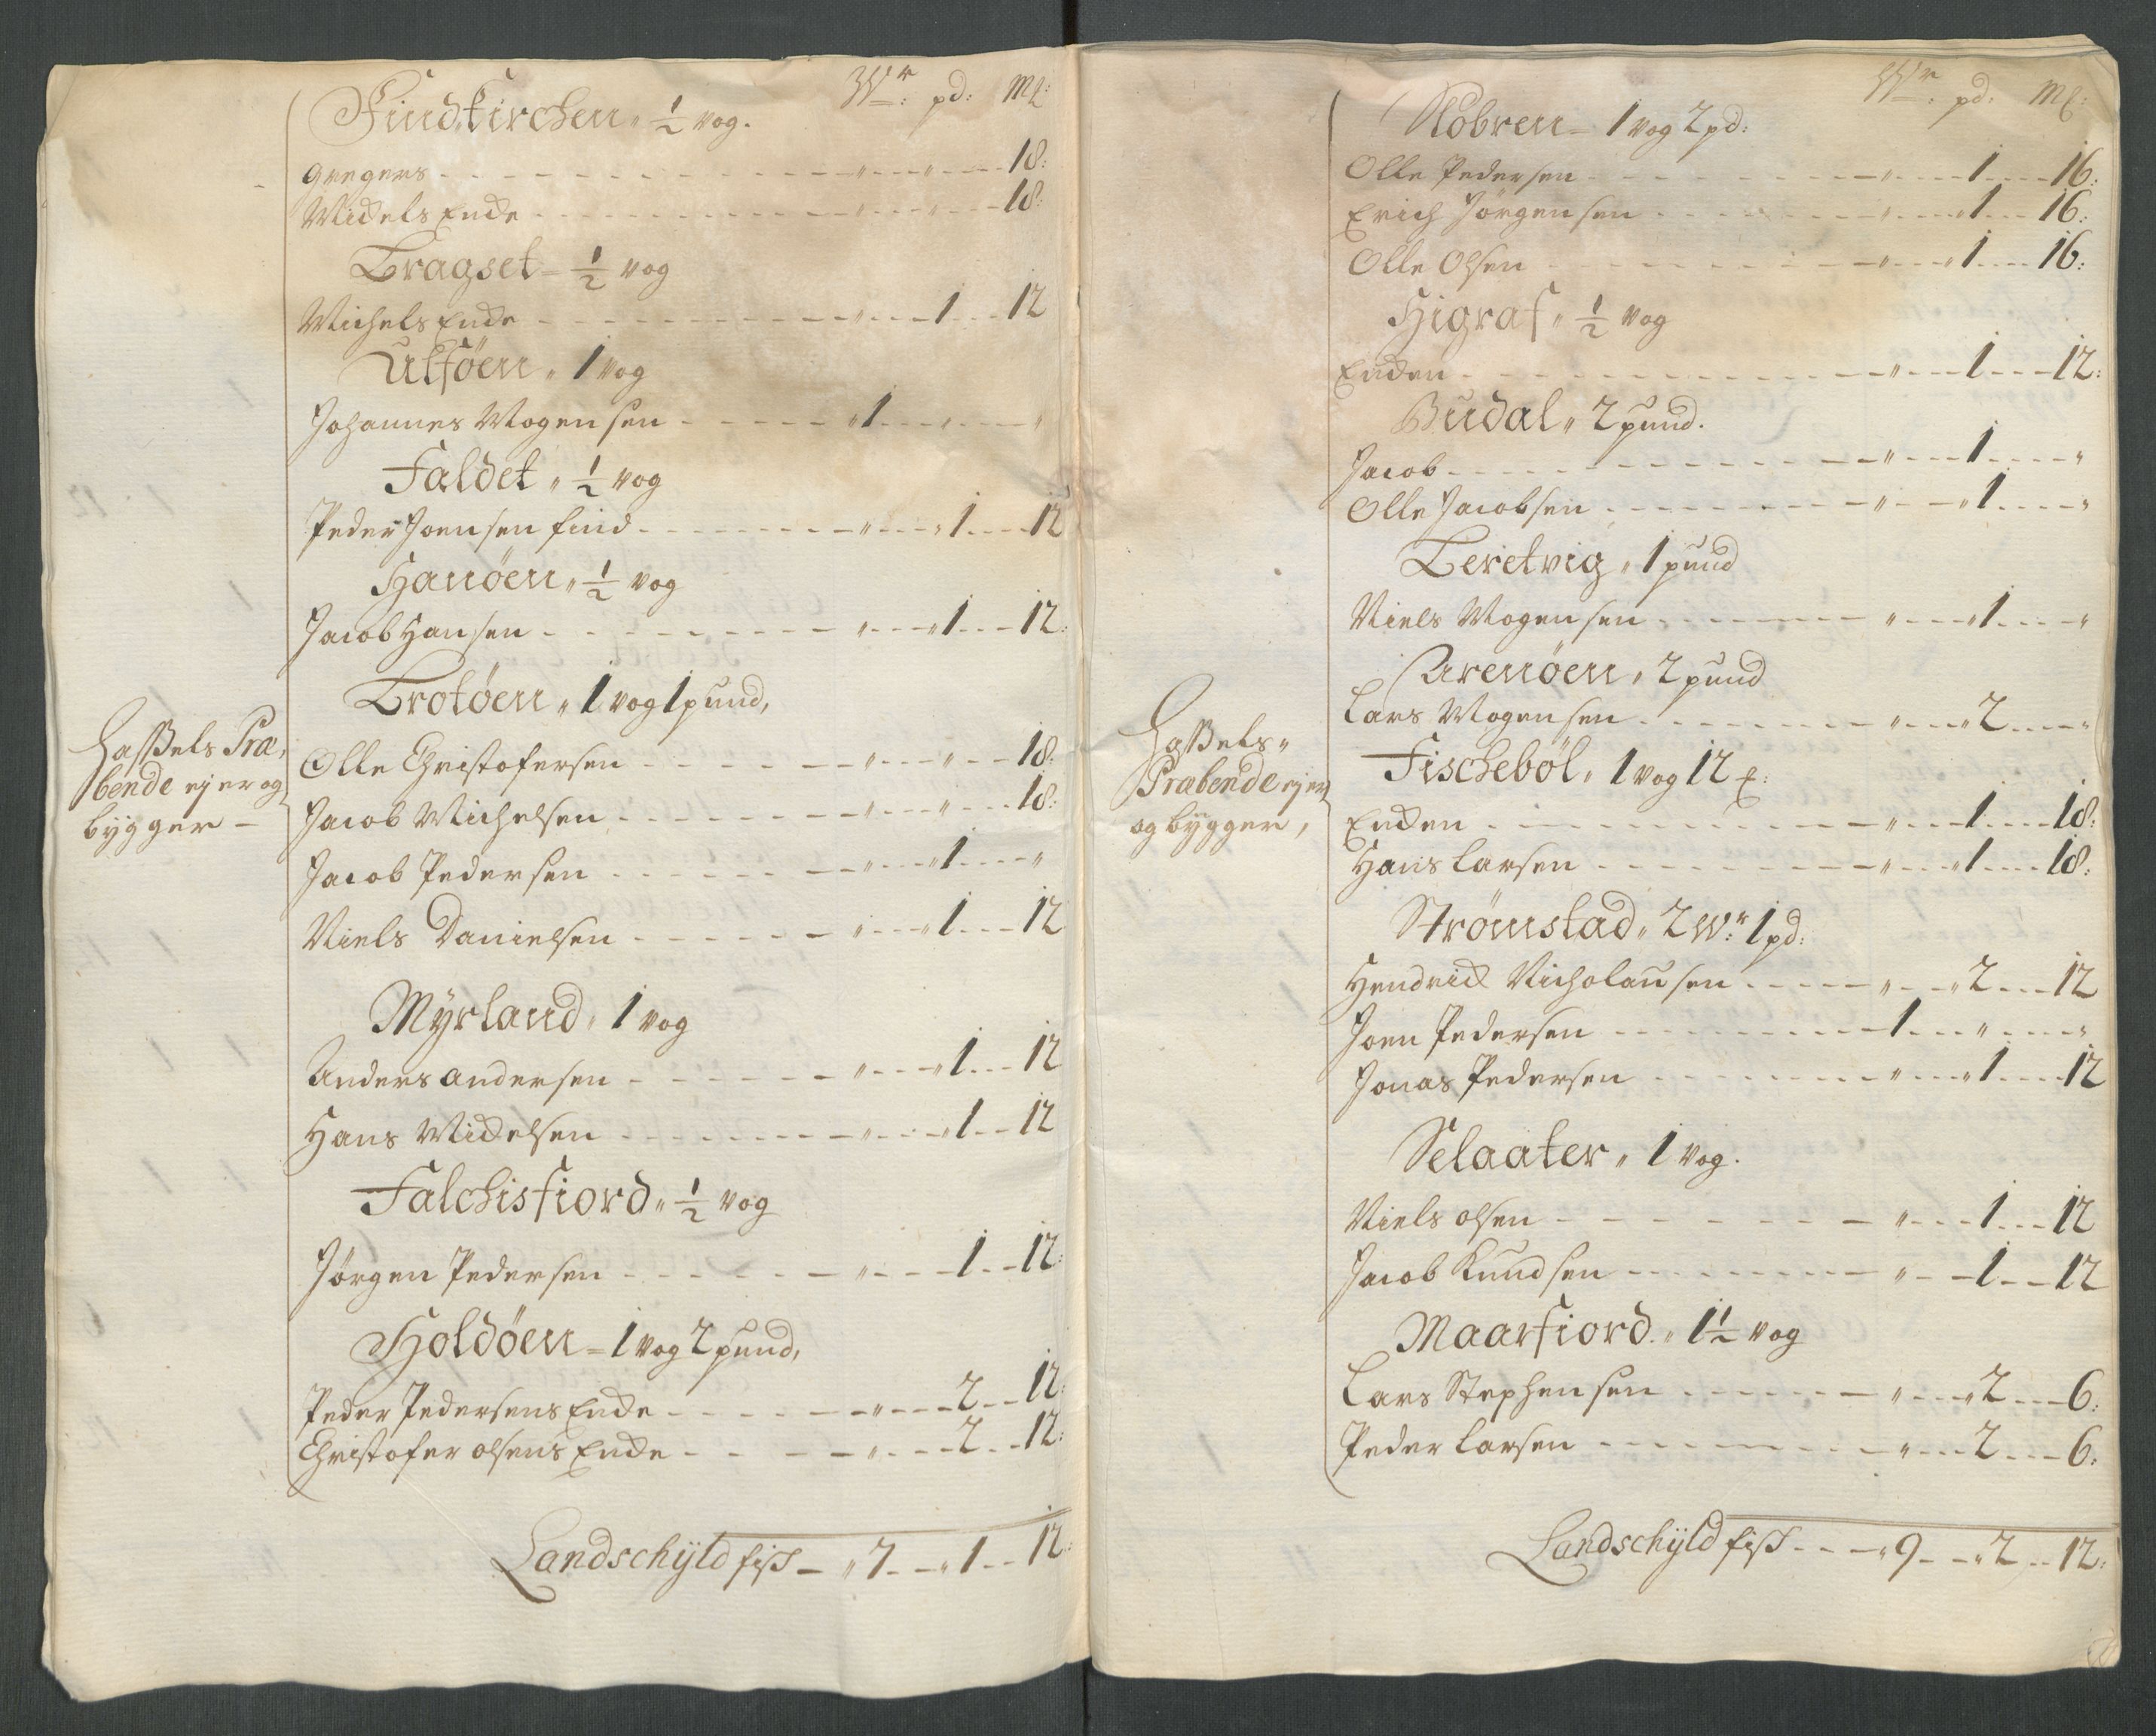 Wr: pd: Mk:
Findkirchen „ ½ vog.
Gregers - - - „ - - „ - - 18:
Mickels Encke - - - „ - - „ - - 18:
Tragset = ½ vog
Michels Encke - - - „ - - 1 - - 12
Ulföen „ 1 vog
Johannes Mogensen - - - „ 1 - - „ - - „
Faldet „ ½ vog
Peder Joensen find - - - „ - - „ 1 - - 12
Hanöen „ ½ vog
Jacob Hansen - - - „ - - „ 1 - - 12:
Trotöen „ 1 vog 1 pund,
Hassels Præ,
bende ejer og
bygger –
Olle Christofersen - - - „ - - „ - - 18:
Jacob Michelsen - - - „ - - „ - - 18:
Jacob Pedersen - - - „ - - „ 1 - - „
Niels Danielsen - - - „ - - „ 1 - - 12
Myrland „ 1 vog
Anders Andersen - - - „ - - „ 1 - - 12
Hans Mickelsen - - - „ - - „ 1 - - 12
Falchisfiord „ ½ vog
Jörgen Pedersen - - - „ - - 1 - - 12:
Holdöen = 1 vog 2 pund,
Peder Pedersens Encke - - - „ - - 2 - - 12:
Christofer olsens Encke - - - „ - - 2 - - 12:
Landschyld fisk – „ 7 - - „ 1 - - 12:
Wr: pd: Mk:
Slobren = 1 vog 2 pd:
Olle Pedersen - - - „ - - 1 - - 16:
Erich Jörgensen - - - „ - - „ 1 - - 16:
Olle Olsen - - - „ - - „ 1 - - 16:
Higraf „ ½ vog
Encken - - - „ - - 1 - - 12:
Budal „ 2 pund.
Jacob - - - „ - - 1 - - „
Olle Jacobsen - - - „ - - „ 1 - - „
Teretvig „ 1 pund
Niels Mogensen - - - „ - - „ 1 - - „
Urenöen „ 2 pund
Lars Mogensen - - - „ - - „ 2 - - „
Hassels „
Præbende ejer
og bygger,
Fischeböl „ 1 vog 12 ℔:
Encken - - - „ - - 1 - - 18:
Hans Larsen - - - „ - - „ 1 - - 18:
Strömstad „ 2 Wr: 1 pd:
Hendrick Nicholausen - - - „ - - „ 2 - - 12
Joen Pedersen - - - 1 - - „ - - „
Jonas Pedersen - - - „ - - „ 1 - - 12
Selaater „ 1 vog.
Niels olsen - - - „ - - 1 - - 12
Jacob Knudsen - - - „ - - 1 - - 12
Maarfiord „ 1½ vog
Lars Stephensen - - - „ - - „ 2 - - 6:
Peder Larsen - - - „ - - 2 - - 6:
Landschyld fisk - - - „ 9 - - „ 2 - - 12: